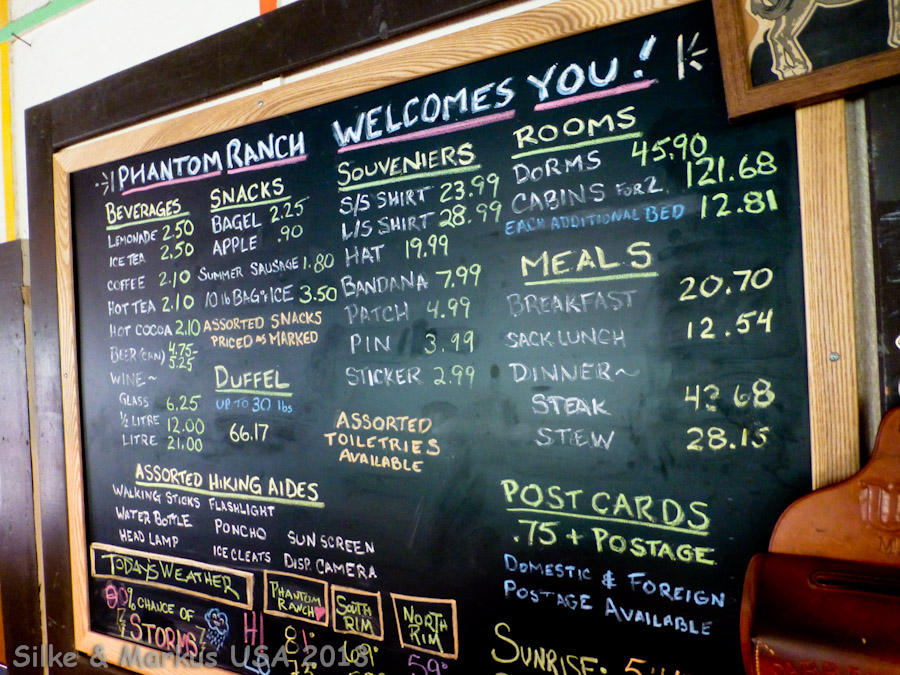 PHANTOM RANCH WELCOMES YOU!
BEVERAGES
LEMONADE 2.50
ICE TEA 2.50
COFFEE 2.10
HOT TEA 2.10
HOT COCOA 2.10
BEER (CAN) 4.75-5.25
WINE~
GLASS 6.25
½ LITRE 12.00
LITRE 21.00
SNACKS
BAGEL 2.25
APPLE .90
SUMMER SAUSAGE 1.80
10 lb BAG OF ICE 3.50
ASSORTED SNACKS
PRICED AS MARKED
DUFFEL
UP TO 30 lbs
66.17
SOUVENIERS
S/S SHIRT 23.99
L/S SHIRT 28.99
HAT 19.99
BANDANA 7.99
PATCH 4.99
PIN 3.99
STICKER 2.99
ASSORTED
TOILETRIES
AVAILABLE
ROOMS
DORMS 45.90
CABINS FOR 2 121.68
EACH ADDITIONAL BED 12.81
MEALS
BREAKFAST 20.70
SACK LUNCH 12.54
DINNER~
STEAK 68
STEW 28.15
POST CARDS
.75 + POSTAGE
DOMESTIC & FOREIGN
POSTAGE AVAILABLE
ASSORTED HIKING AIDES
WALKING STICKS FLASHLIGHT
WATER BOTTLE PONCHO SUNSCREEN
HEAD LAMP ICE CLEATS DISP. CAMERA
TODAYS WEATHER
% CHANCE OF
STORMS
PHANTOM RANCH
SOUTH RIM
NORTH RIM
HI 81° 59°
SUNRISE:
Silke & Markus USA 2013